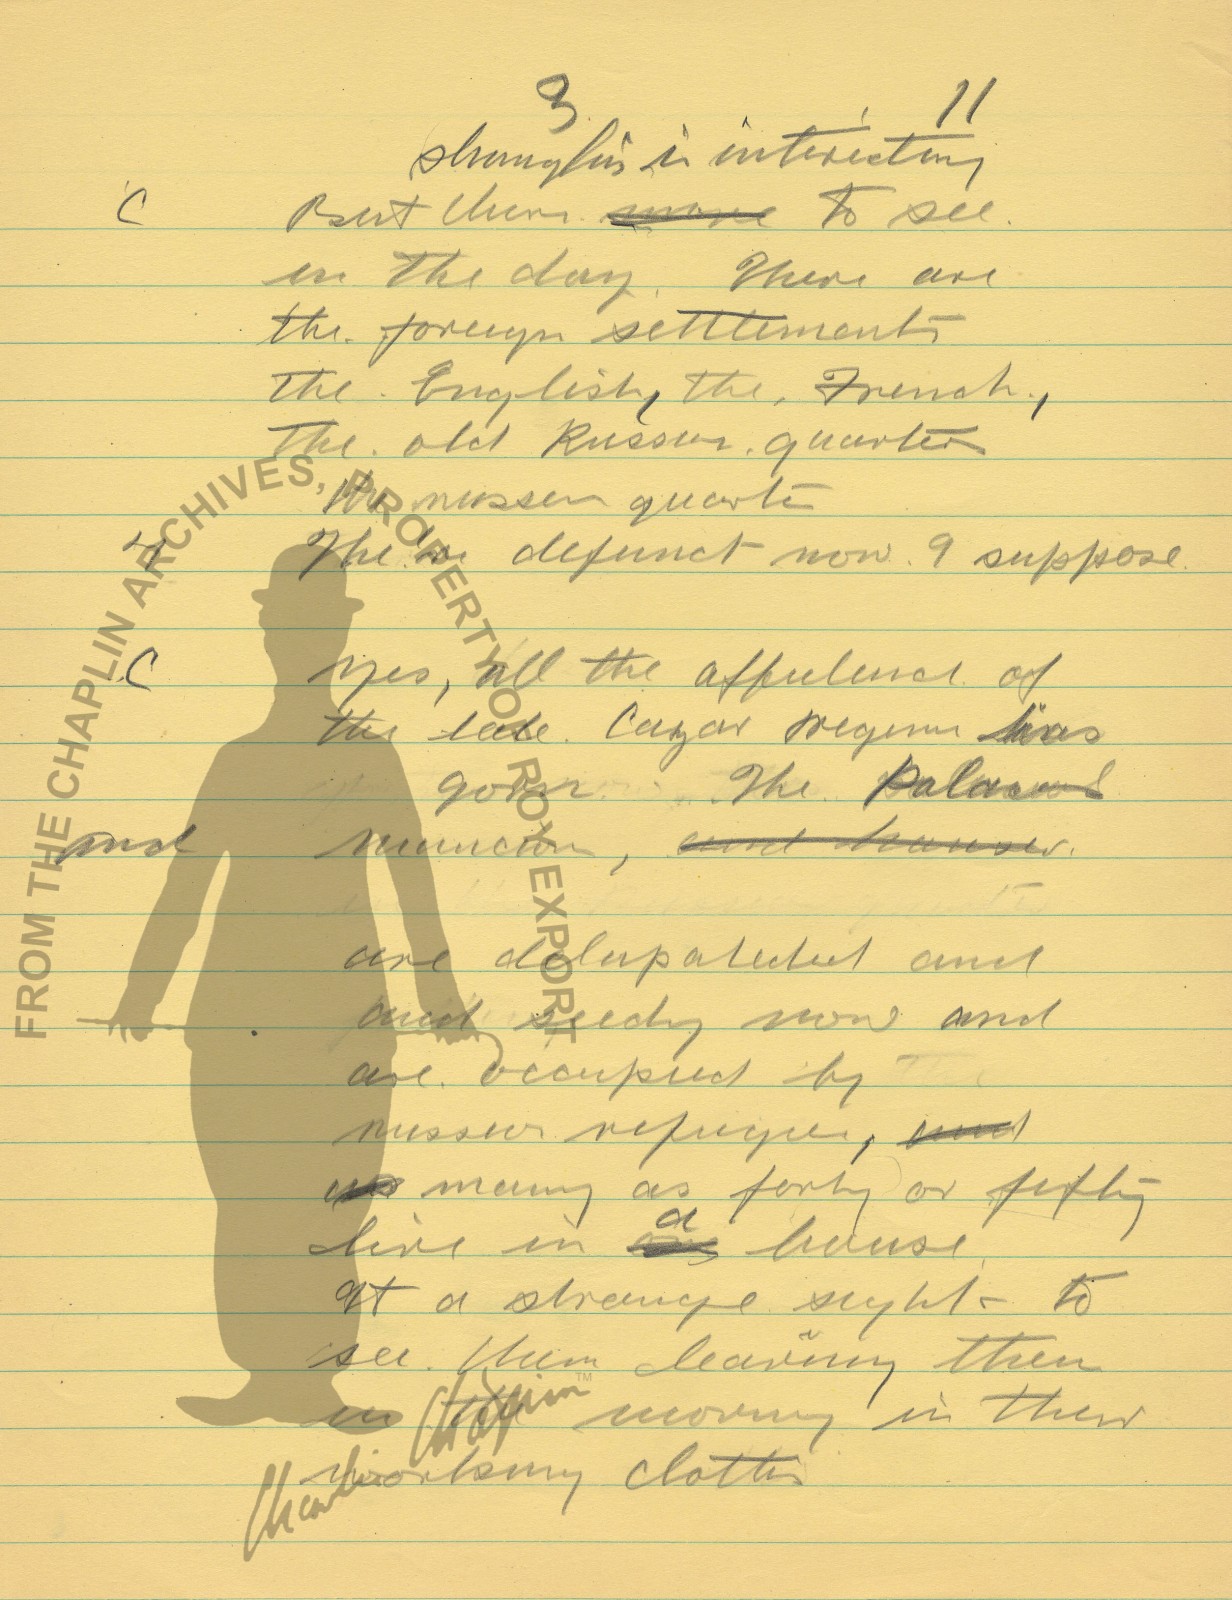 3 11
shanghai is interesting
C But there more to see.
in the day. There are
the foreign settlements
the English, the French,
the old Russian quarter
the russian quarter
The're defunct now I suppose.
C Yes, all the affulence of
the late Czar regeme has
gone. The Palaces
and mancion, and houses.
are delapatated and
and seedy now and
are occupied by
russian refugees, and
as many as forty or fifty
live in a house.
It a strange sight to
see them leaving them
in the morning in their
working clothes
FROM THE CHAPLIN ARCHIVES, PROPERTY OF ROY EXPORT
Charlie Chaplin™